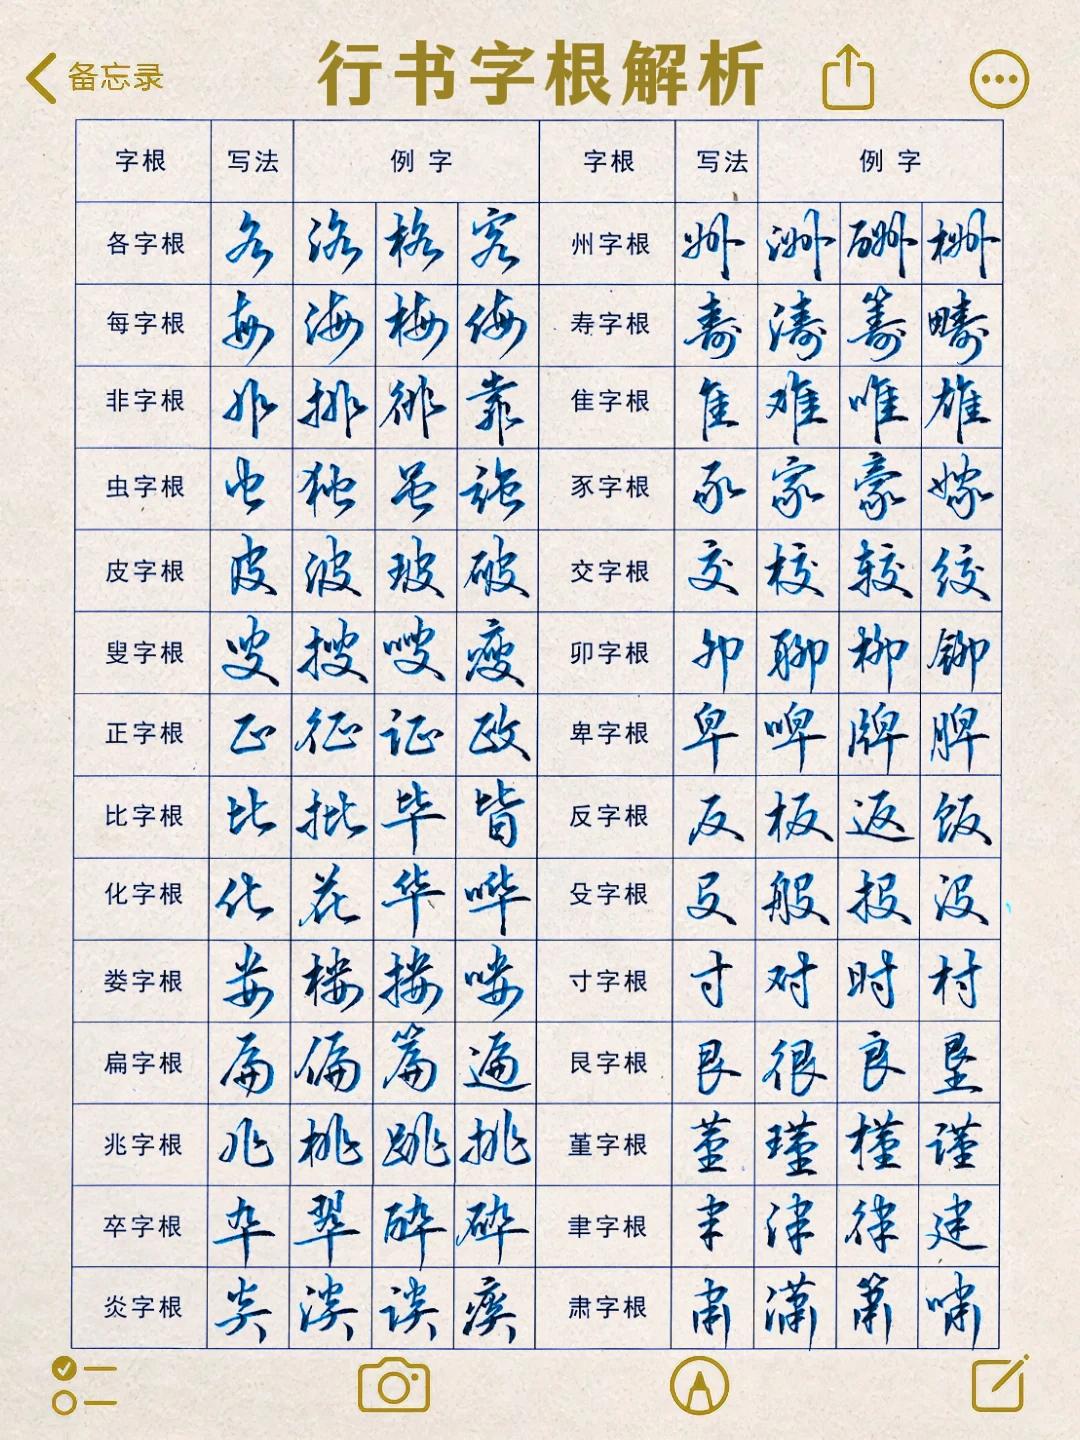 备忘录 行书字根解析
字根 写法 例字 字根 写法 例字
各字根 各 洛 格 客 州字根 州 洲 酬 栦
每字根 每 海 梅 侮 寿字根 寿 涛 筹 畴
非字根 非 排 徘 靠 隹字根 隹 难 唯 雄
虫字根 虫 独 虽 强 豕字根 豕 家 豪 嫁
皮字根 皮 波 玻 破 交字根 交 校 较 绞
叟字根 叟 搜 嗖 瘦 卯字根 卯 聊 柳 铆
正字根 正 征 证 政 卑字根 卑 啤 牌 脾
比字根 比 批 毕 皆 反字根 反 板 返 饭
化字根 化 花 华 哗 殳字根 殳 般 报 没
娄字根 娄 楼 搂 喽 寸字根 寸 对 时 村
扁字根 扁 偏 篇 遍 艮字根 艮 很 良 垦
兆字根 兆 桃 跳 挑 堇字根 堇 瑾 槿 谨
卒字根 卒 翠 醉 碎 聿字根 聿 津 律 建
炎字根 炎 淡 谈 痰 肃字根 肃 潇 箫 啸